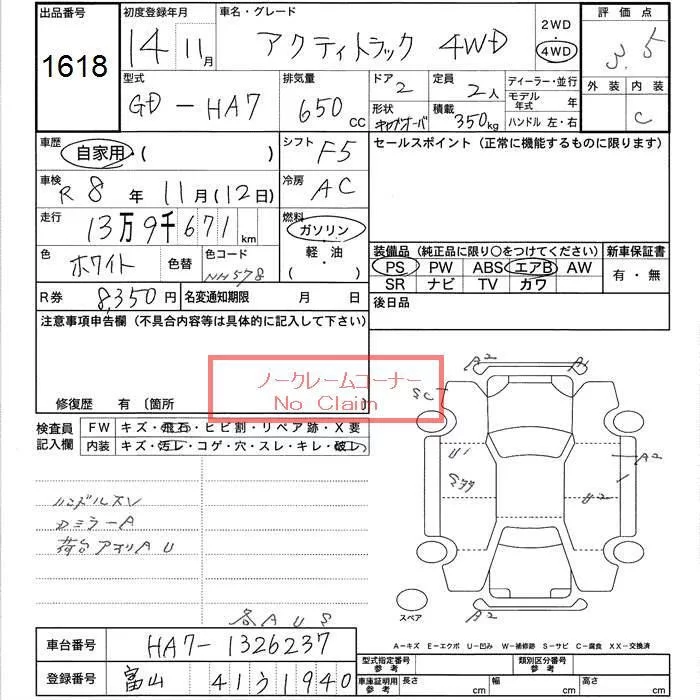 出品番号
1618
初度登録年月
14年11月
車名・グレード
アクティトラック 4WD
2WD
4WD
評価点
3.5
外装 内装
C
型式
GD-HA7
排気量
650 CC
ドア
2
定員
2人
ディーラー・並行
モデル年式 年
形状
積載
350kg
ハンドル 左・右
車歴
自家用・( )
シフト
F5
セールスポイント (正常に機能するものに限ります)
車検
R8年11月(12日)
冷房
AC
走行
13万9千671km
燃料
ガソリン
軽・油
( )
色
ホワイト
色替
色コード
NH578
装備品 (純正品に限り〇をつけてください)
新車保証書
PS PW ABS エアB AW
SR ナビ TV カワ
有・無
R券
8,350円
名変通知期限 月 日
後日品
注意事項申告欄 (不具合内容等は具体的に記入して下さい)
ノークレームコーナー
No Claim
修復歴 有 〔箇所 〕
検査員記入欄
FW キズ・飛石・ヒビ割・リペア跡・X要
内装 キズ・汚レ・コゲ・穴・スレ・キレ・破レ
ハンドルスレ
荷台アオリAU
各AUS
A2
A1
SC
U1
A2
1
U2
A2
スペア
A2
A-キズ E-エクボ U-凹み W-補修跡 S-サビ C-腐食 XX-交換済
車台番号
HA7-1326237
登録番号
富山 41う1940
型式指定番号 参考
類別区分番号 参考
車庫証明用 参考
長さ cm
幅 cm
高さ cm